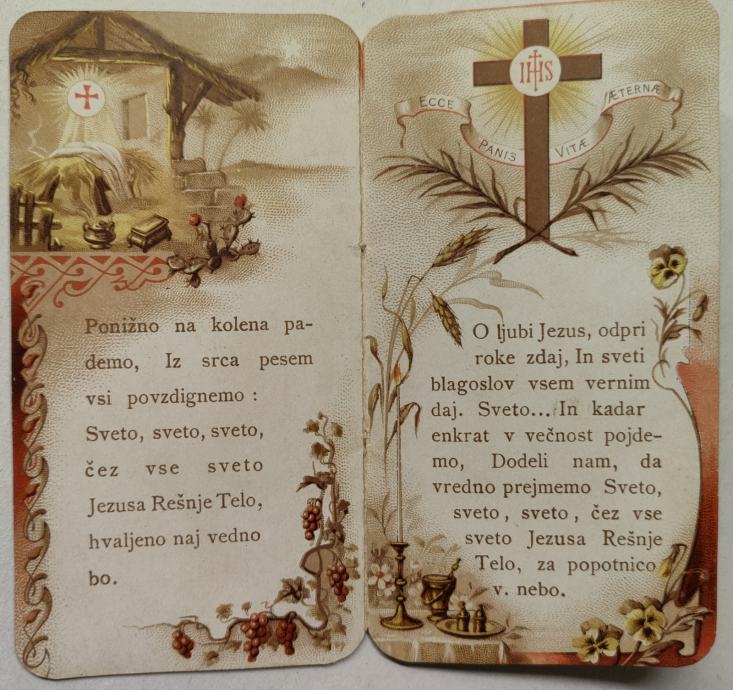 Ponižno na kolena pa-
demo, Iz srca pesem
vsi povzdignemo :
Sveto, sveto, sveto,
čez vse sveto
Jezusa Rešnje Telo,
hvaljeno naj vedno
bo.
IHS
ECCE PANIS VITÆ ÆTERNÆ
O ljubi Jezus, odpri
roke zdaj, In sveti
blagoslov vsem vernim
daj. Sveto... In kadar
enkrat v večnost pojde-
mo, Dodeli nam, da
vredno prejmemo Sveto,
sveto, sveto, čez vse
sveto Jezusa Rešnje
Telo, za popotnico
v. nebo.